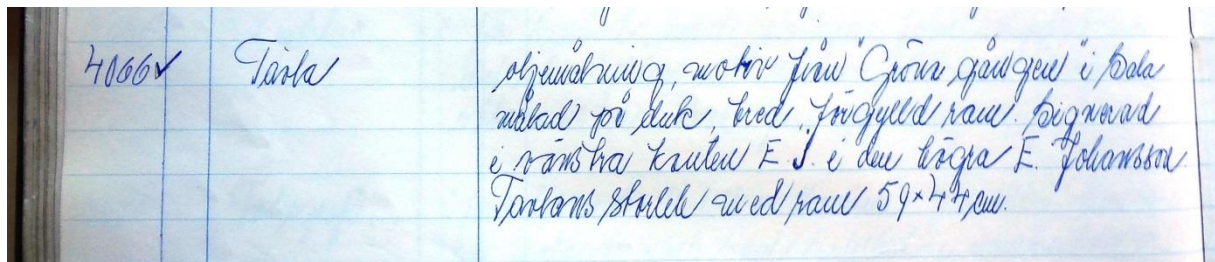 4066✓ Tavla oljemålning, motiv från "Gröna gången" i Sala
målad på duk, bred, förgylld ram. Signerad
i vänstra kanten E.J. i den högra E. Johansson.
Tavlans storlek med ram 59×44 cm.